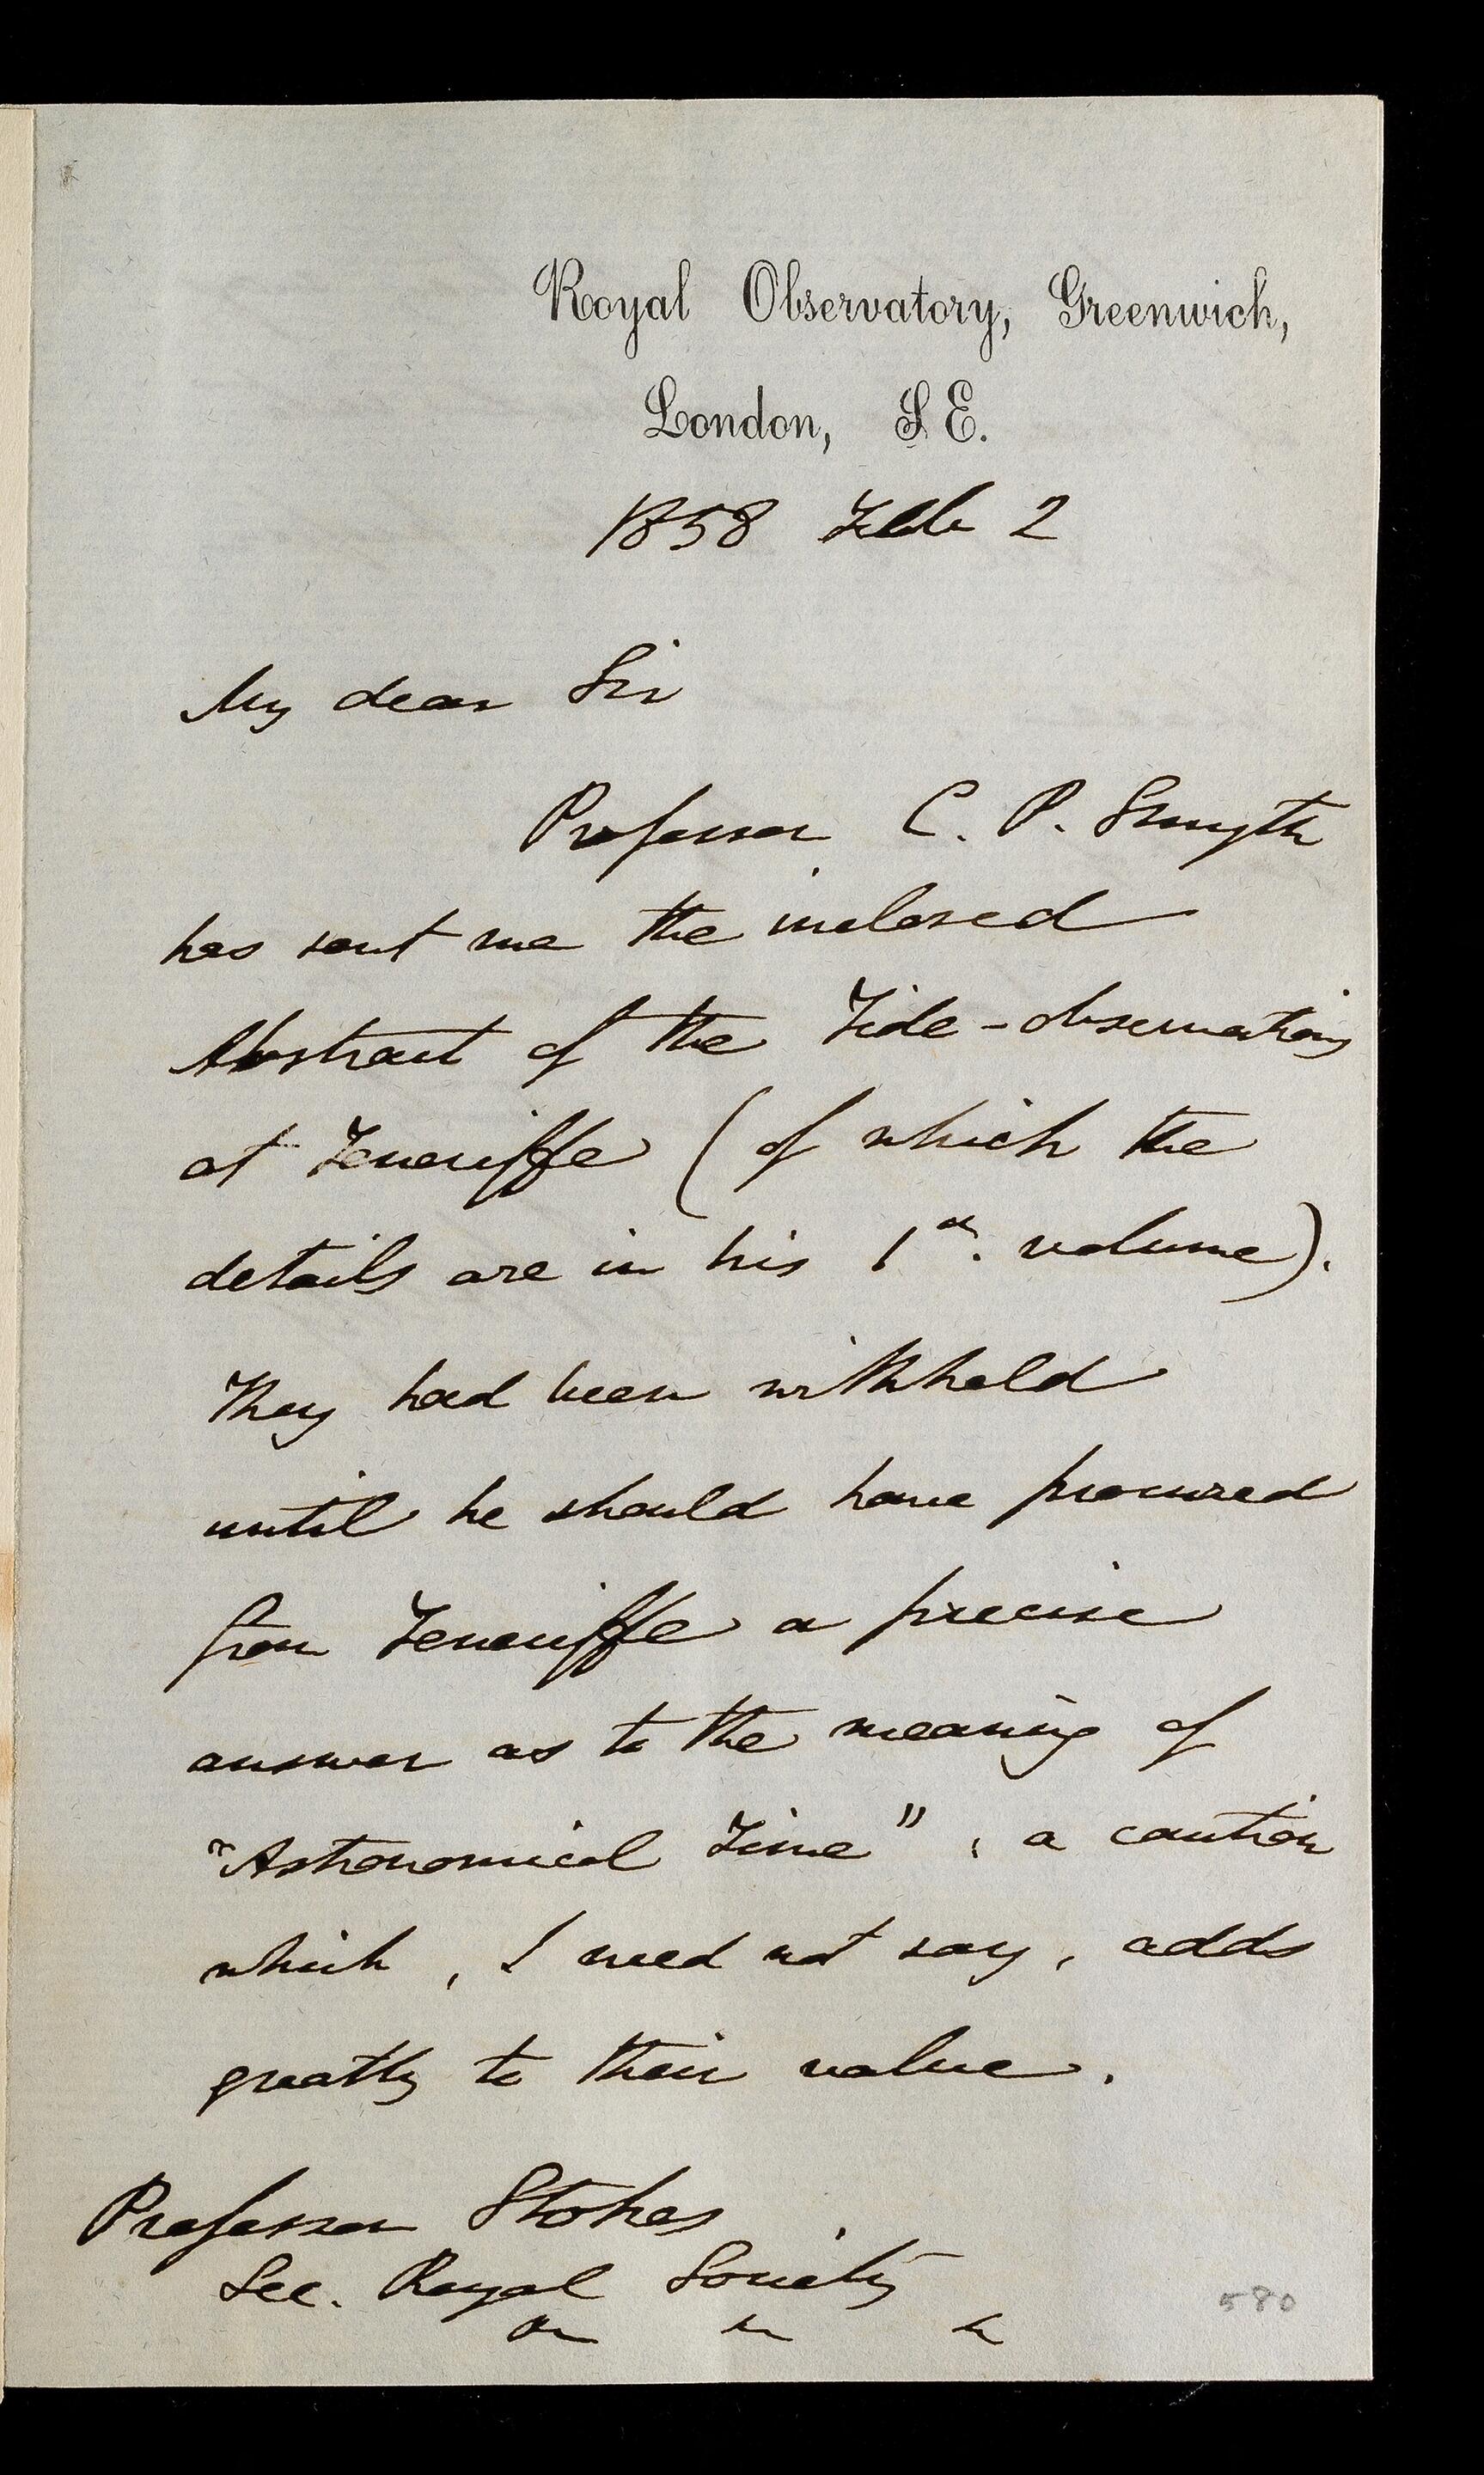 Royal Observatory, Greenwich,
London, S E.
1858 Feb 2
My dear Sir
Professor C. P. Smyth
has sent me the inclosed
Abstract of the Tide-observations
at Teneriffe (of which the
details are in his 1st. volume).
They had been withheld
until he should have procured
from Teneriffe a precise
answer as to the meaning of
"Astronomical Time", a caution
which, I need not say, adds
greatly to their value.
Professor Stokes
Sec. Royal Society
580